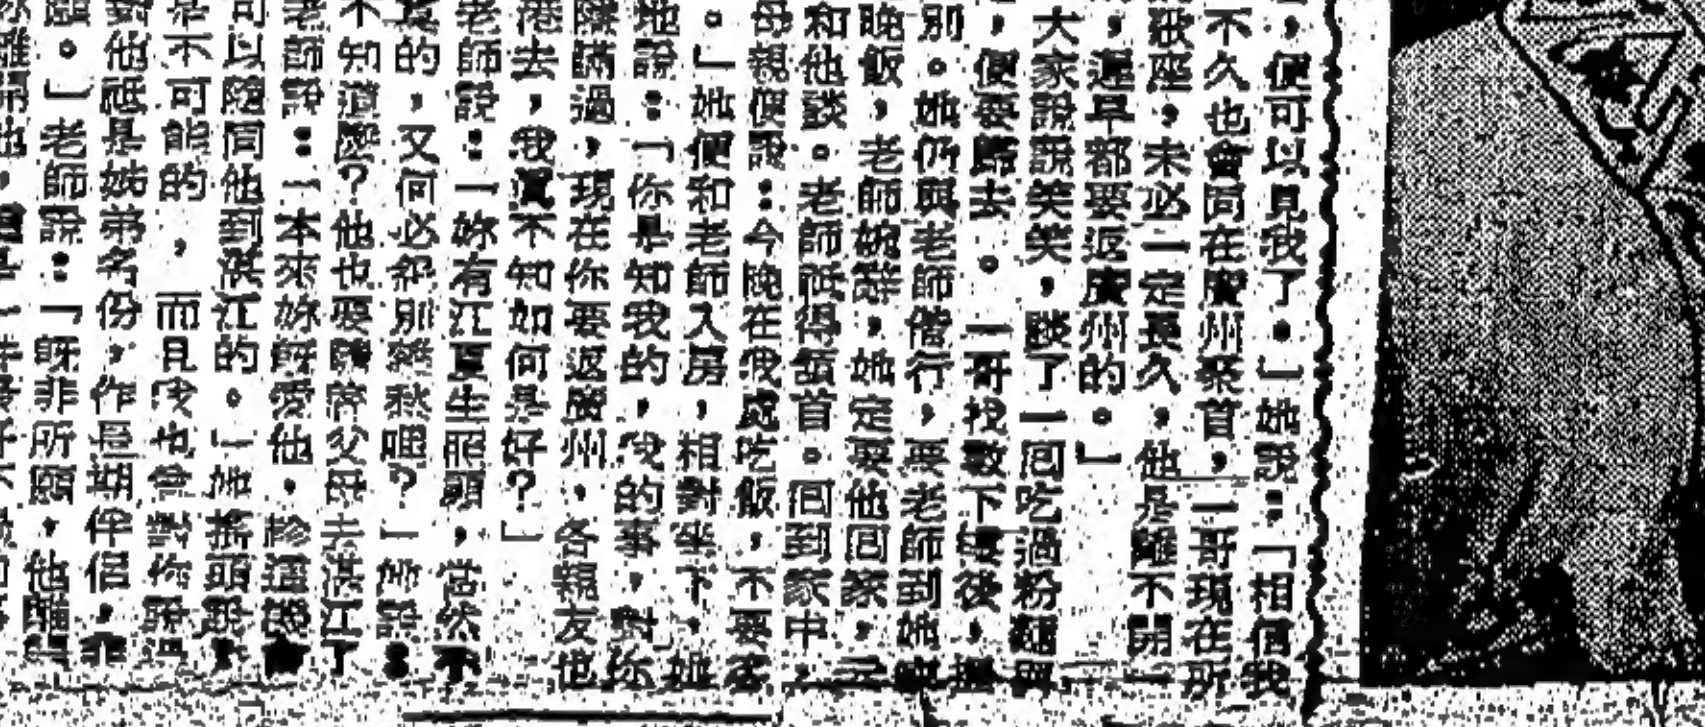 ，便可以見我了。」她說：「相信我
不久也會同在廣州聚首，一哥現在所
歌座，未必一定長久，他是離不開
，遲早都要返廣州的。」
大家說說笑笑，談了一回吃過粉麵
，便要歸去。一哥找數下樓後，
別。她仍與老師偕行，要老師到她
晚飯，老師婉辭，她定要他回家，
和他談。老師祗得頷首。回到家中，
母親便說：今晚在我處吃飯，不要客
。」她便和老師入房，相對坐下，她
地說：「你是知我的，我的事，對你
隱瞞過，現在你要返廣州，各親友也
港去，我眞不知如何是好？」
老師說：「妳有江夏生照顧，當然不
眞的，又何必邨別離愁呢？」她說：
不知道麽？他也要隨父母去湛江了
老師說：「本來妳旣愛他，
可以隨同他到湛江的。」她搖頭說，
是不可能的，而且我也曾對你說過
對他祗是姊弟名份，作長期伴侶，非
願。」老師說：「旣非所願，他
離開他，